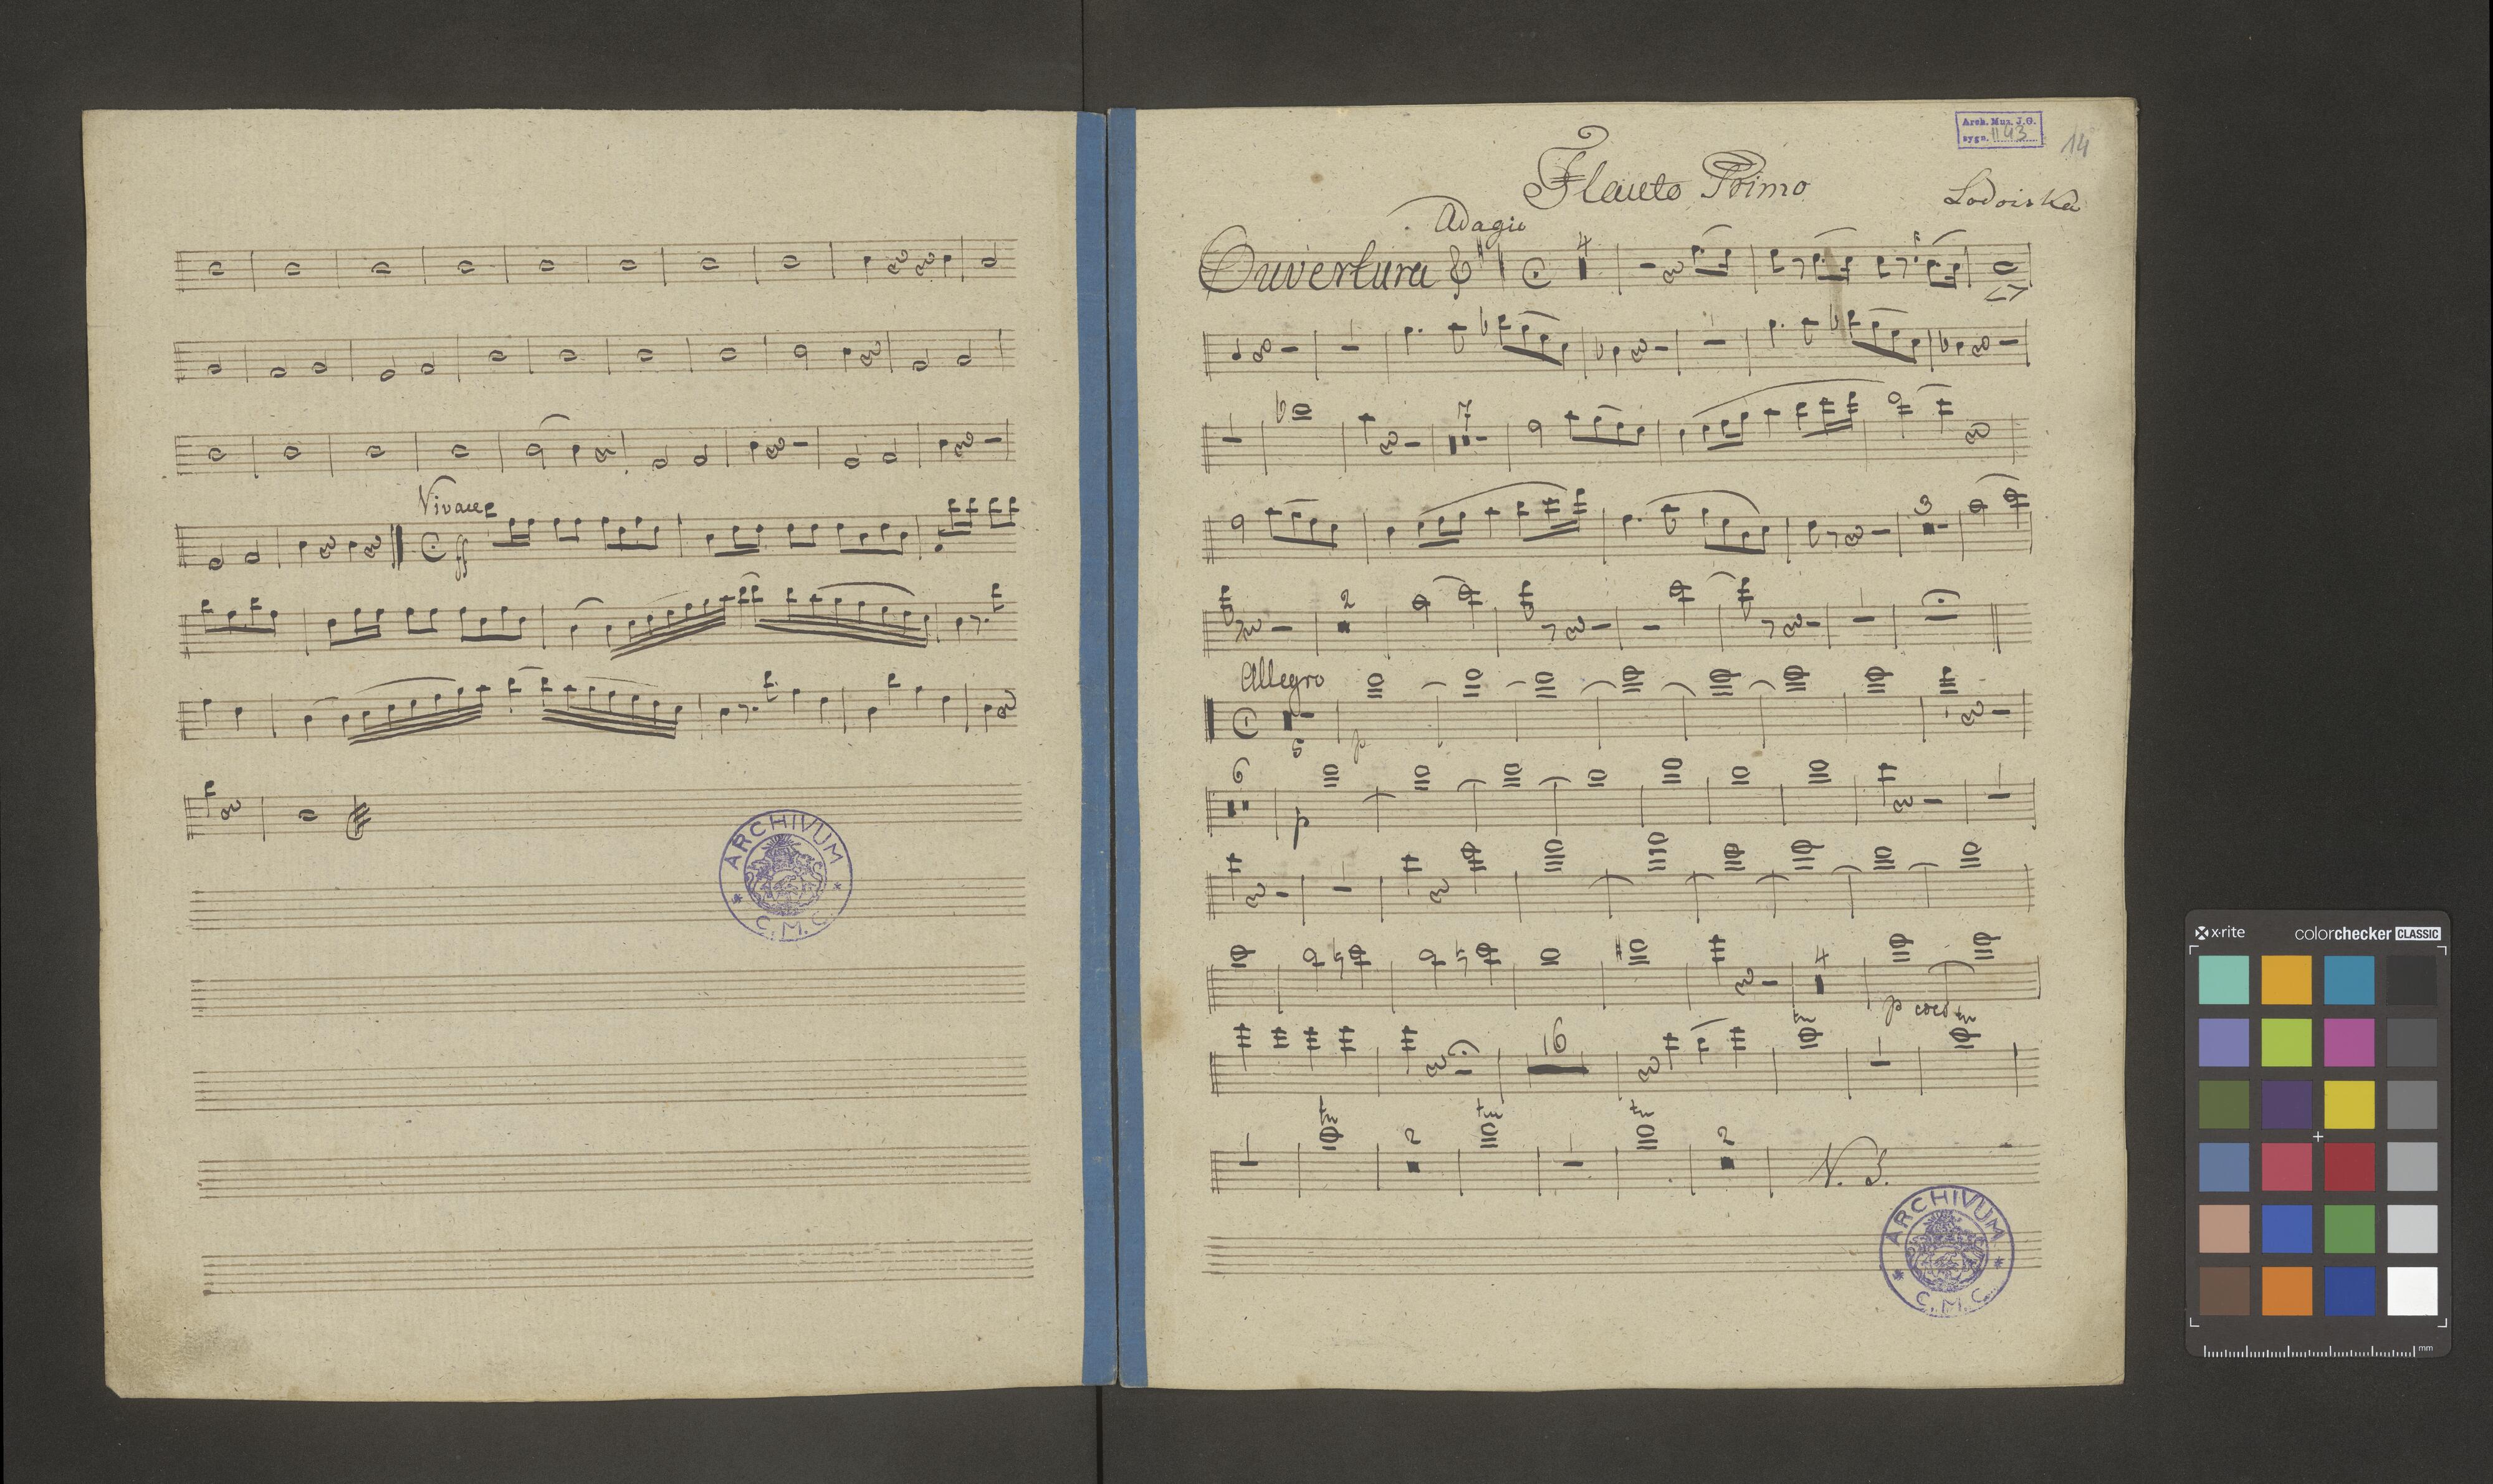 Vivace
ff
ARCHIVUM
C.M.C.
Arch. Muz. J.G.
sygn. II 43
14
Flauto Primo
Lodoiska
Adagio
Ouvertura
4
7
3
2
Allegro
5
p
6
p
4
p
tr
tr
16
tr
tr
tr
2
2
N. 3.
ARCHIVUM
C.M.C.
x-rite
colorchecker CLASSIC
mm